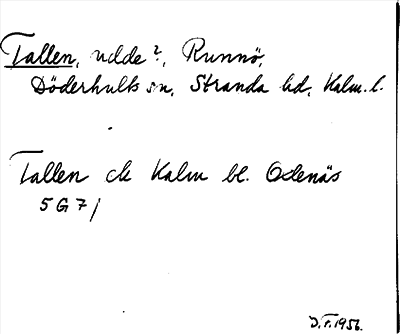 Tallen, udde?, Runnö,
Döderhults sn, Stranda hd, Kalm. l.
Tallen ek Kalm bl. Odenäs
5 G 7j
J.F. 1956.